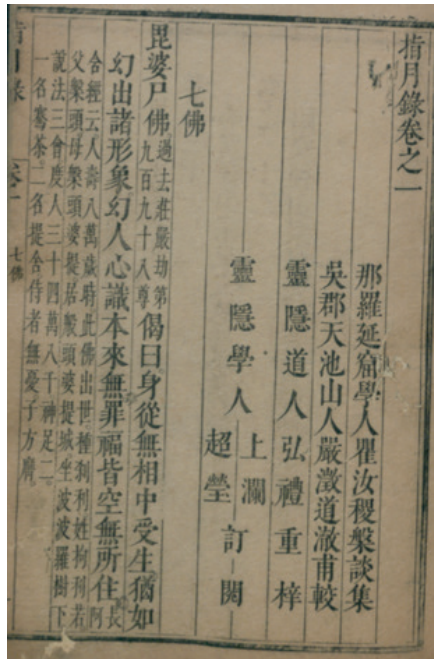 指月錄卷之一
那羅延窟學人瞿汝稷槃談集
吳郡天池山人嚴澂道澈甫較
靈隱道人弘禮重梓
靈隱學人上瀾超瑩訂閱
七佛
毘婆尸佛過去莊嚴劫第九百九十八尊偈曰身從無相中受生猶如
幻出諸形象幻人心識本來無罪福皆空無所住長阿
含經云人壽八萬歲時此佛出世種剎利姓拘利若
父槃頭母槃頭婆提居般頭婆提城坐波波羅樹下
說法三會度人三十四萬八千神足二
一名騫荼二名提舍侍者無憂子方膺
指月錄 卷一 七佛